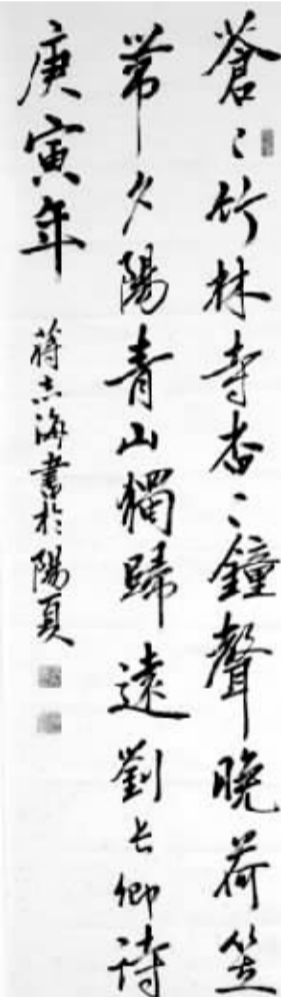 蒼々竹林寺杳々鐘聲晚荷笠
帶夕陽青山獨歸遠劉長卿詩
庚寅年
蔣志海書於陽夏